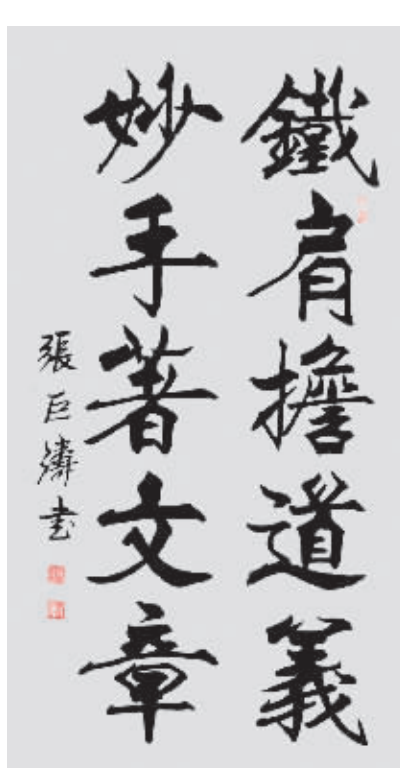 鐵肩擔道義
妙手著文章
張巨濤书